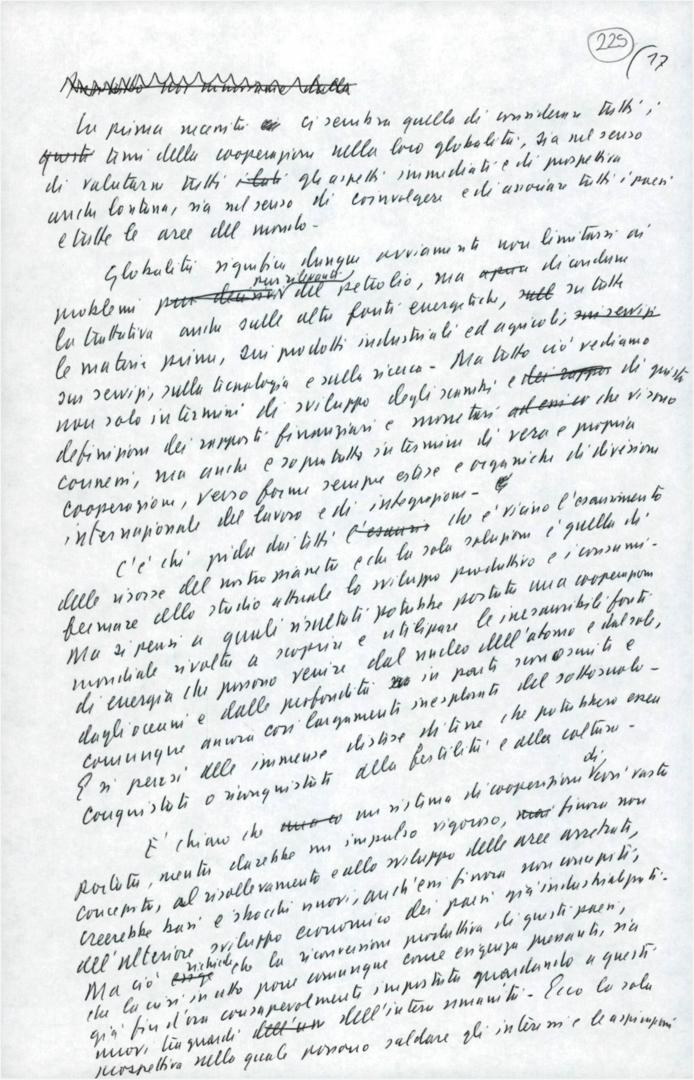 225
17
La prima necessità ci sembra quella di considerare tutti i
questi temi della cooperazione nella loro globalità, sia nel senso
di valutarne tutti i lati gli aspetti immediati e di prospettiva
anche lontana, sia nel senso di coinvolgere e di associare tutti i paesi
e tutte le aree del mondo.
Globalità significa dunque ovviamente non limitarsi ai
problemi pur rilevanti del petrolio, ma di condurre
la trattativa anche sulle altre fonti energetiche, su tutte
le materie prime, sui prodotti industriali ed agricoli, sui servizi
sui servizi, sulla tecnologia e sulla ricerca. Ma tutto ciò vediamo
non solo in termini di sviluppo degli scambi e di giusta
definizione dei rapporti finanziari e monetari che vi sono
connessi, ma anche e soprattutto in termini di vera e propria
cooperazione, verso forme sempre estese e organiche di divisione
internazionale del lavoro e di integrazione.
C'è chi grida dai tetti che è vicino l'esaurimento
delle risorse del nostro pianeta e che la sola soluzione è quella di
fermare allo stadio attuale lo sviluppo produttivo e i consumi.
Ma si pensi a quali risultati potrebbe portare una cooperazione
mondiale rivolta a scoprire e utilizzare le inesauribili fonti
di energia che possono venire dal nucleo dell'atomo e dal sole,
dagli oceani e dalle profondità in parte sconosciute e
comunque ancora così largamente inesplorate del sottosuolo.
E si pensi alle immense distese di terre che potrebbero essere
conquistate o riconquistate alla fertilità e alla coltura.
È chiaro che un sistema di cooperazione di così vasta
portata, mentre darebbe un impulso vigoroso, finora non
concepito, al risollevamento e allo sviluppo delle aree arretrate,
creerebbe basi e sbocchi nuovi, anch'essi finora non concepiti,
all'ulteriore sviluppo economico dei paesi già industrializzati.
Ma ciò richiede che la riconversione produttiva di questi paesi,
che la crisi in atto pone comunque come esigenza pressante, sia
già fin d'ora consapevolmente impostata guardando a questi
nuovi traguardi dell'intera umanità. Ecco la sola
prospettiva nella quale possono saldare gli interessi e le aspirazioni